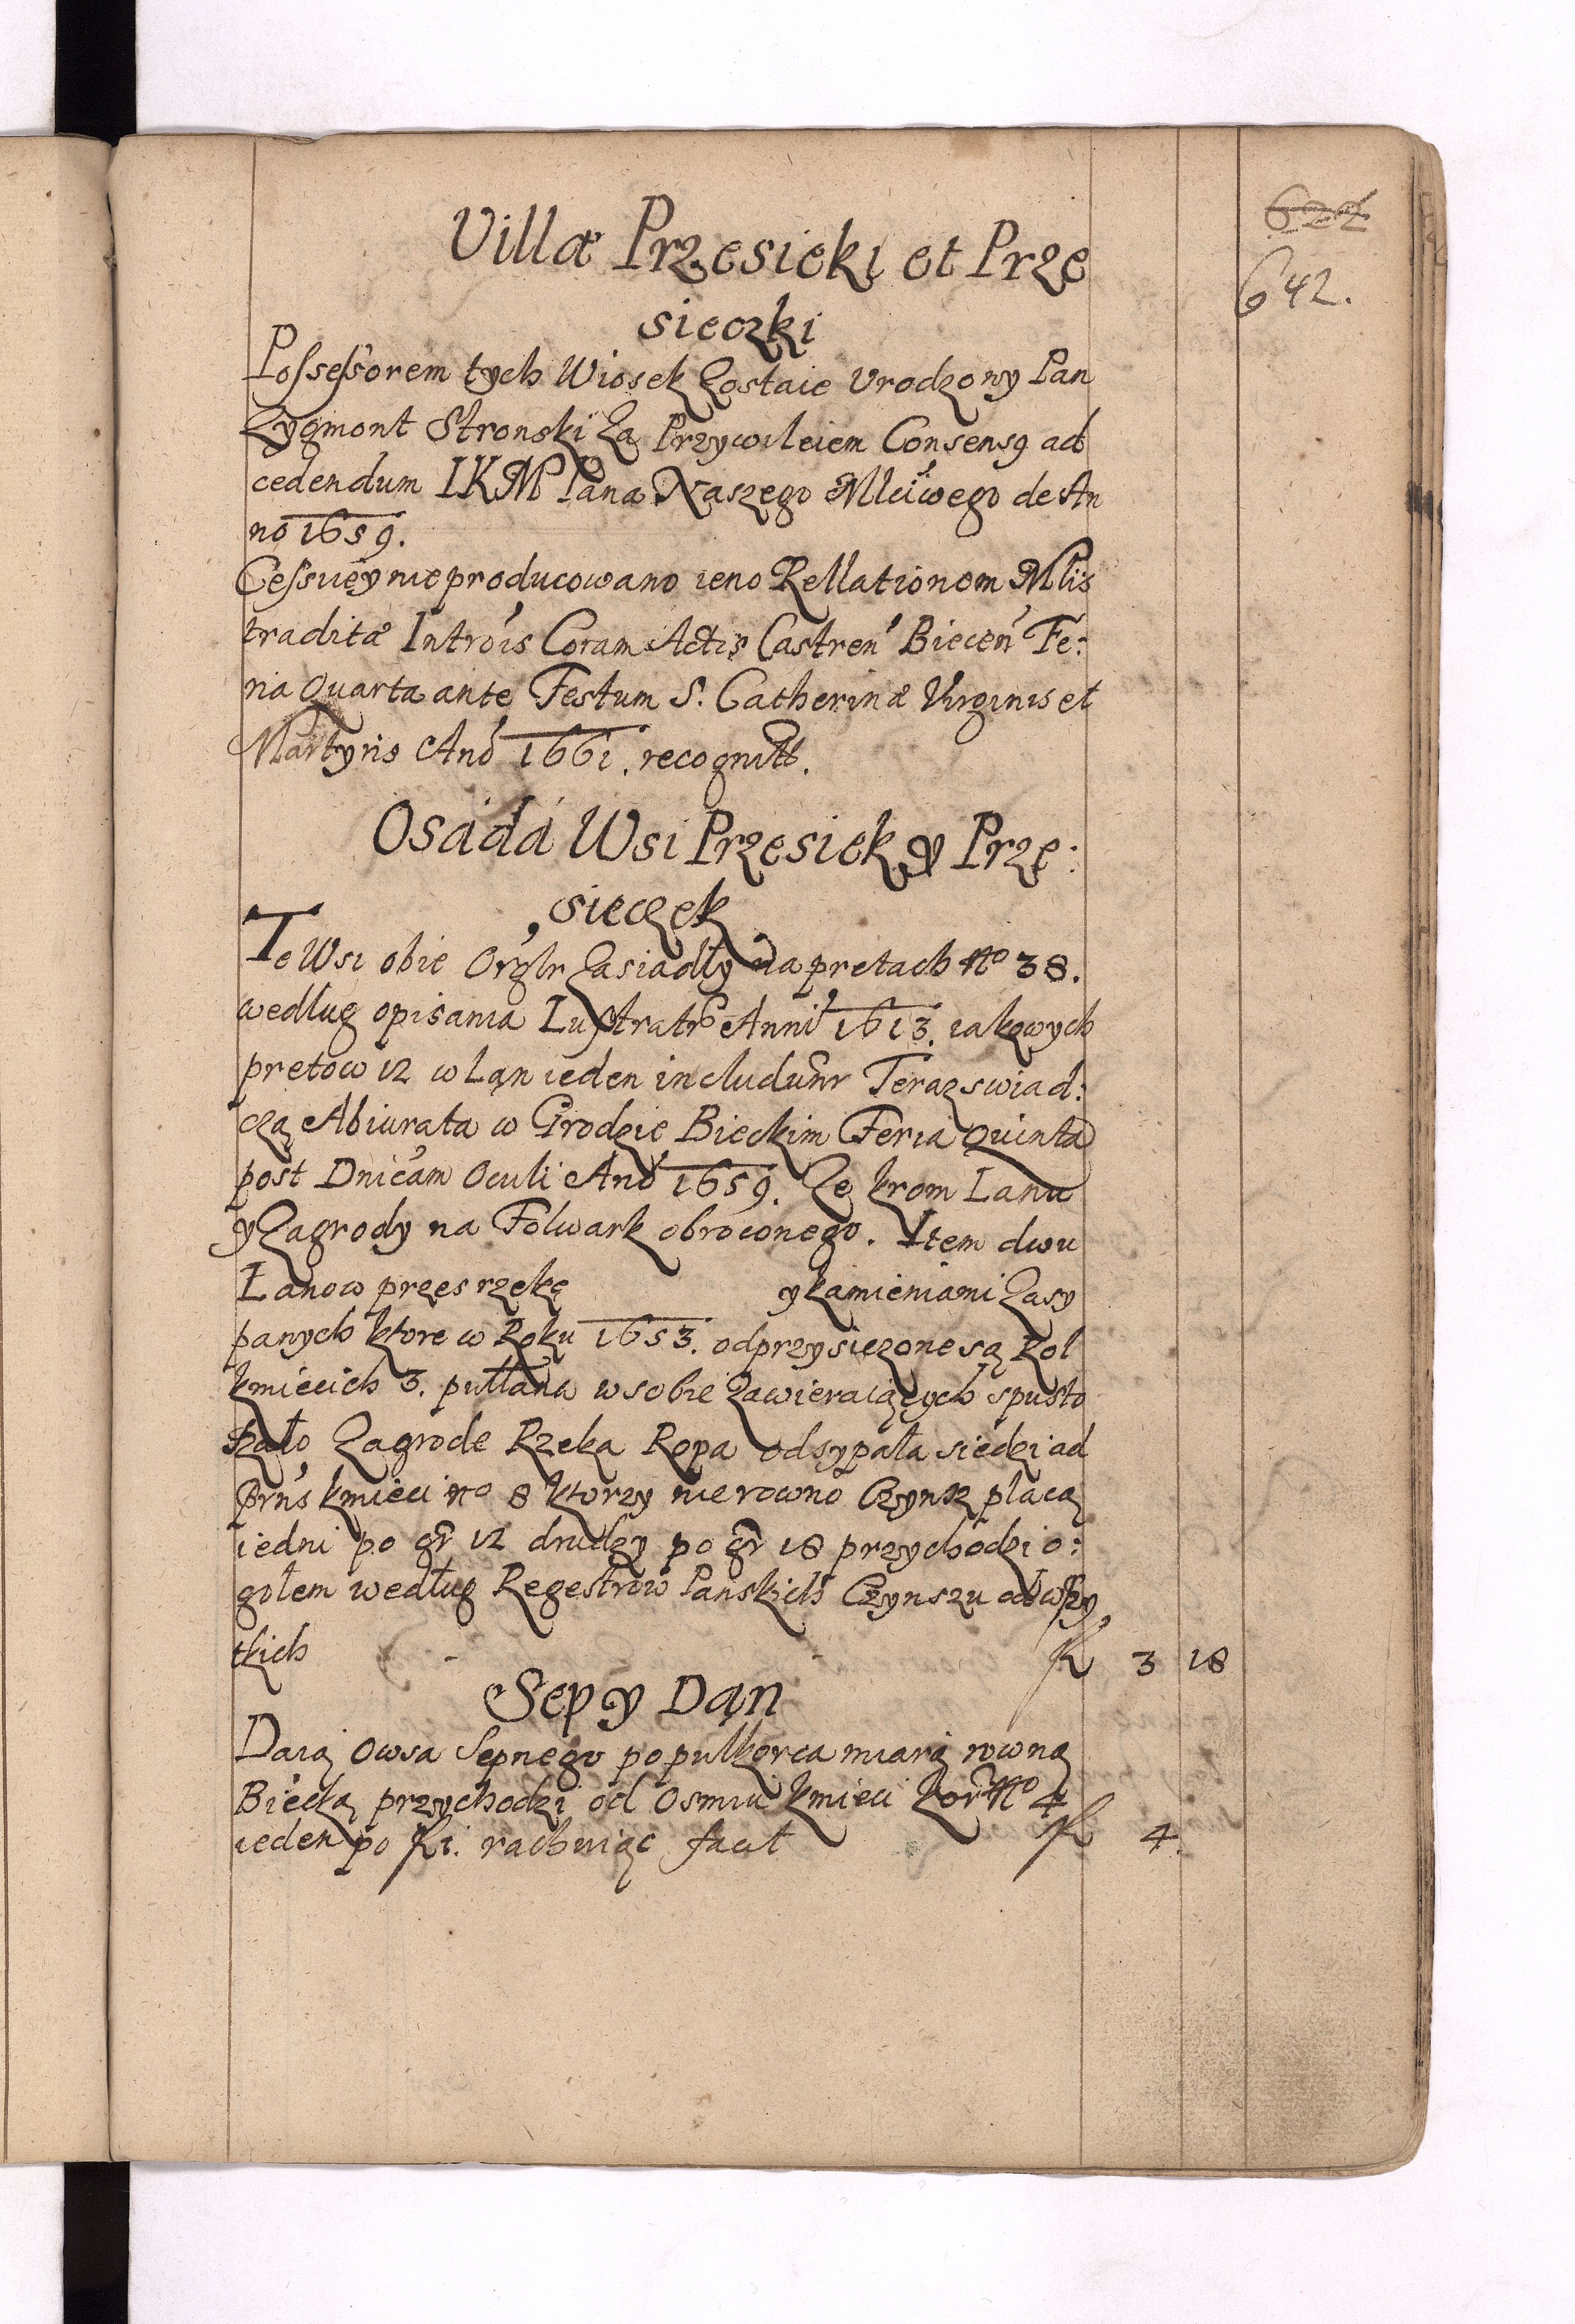 622
642.
Villæ Przesieki et Prze
sieczki
Possessorem tych Wiosek Zostaie Vrodzony Pan
Zygmont Stronski Za Przywileiem Consensu ad
cedendum IKM Pana Naszego Mlciwego de An
no 1659.
Cessiiey nie producowano ieno Rellationem Mlis
traditæ Introis Coram Actis Castren Biecen Fe:
ria Quarta ante Festum S. Catherinæ Virginis et
Martyris Ano 1661. recognitt.
Osada Wsi Przesiek y Prze:
sieczek
Te Wsi obie Orglr Zasiadły na pretach No 38.
według opisania Lustratr Anni 1613. iakowych
pretow 12 w Łan ieden includunr Teraz swiad:
czą Abiurata w Grodzie Bieckim Feria Quinta
post Dnicam Oculi Ano 1659. Ze krom Łanu
y Zagrody na Folwark obroconego. Item dwu
Łanow przes rzekę y kamieniami Zasy
panych ktore w Roku 1653. odprzysiezone są Rol
kmiecich 3. pułłana w sobie Zawieraiących spusto
szało Zagrode Rzeka Ropa odsypała siedzi ad
prns kmieci No 8 ktorzy nierowno Czynsz płacą
iedni po gr 12 drudzy po gr 18 przychodzi o:
gołem według Regestrow Panskich Czynszu od wszy
tkich - - fl 3 18
Sep y Dan
Daią Owsa Sepnego po pułkorca miarą rowną
Biecką przychodzi od Osmiu kmieci kor No 4
ieden po fl 1. rachuiąc facit fl 4.